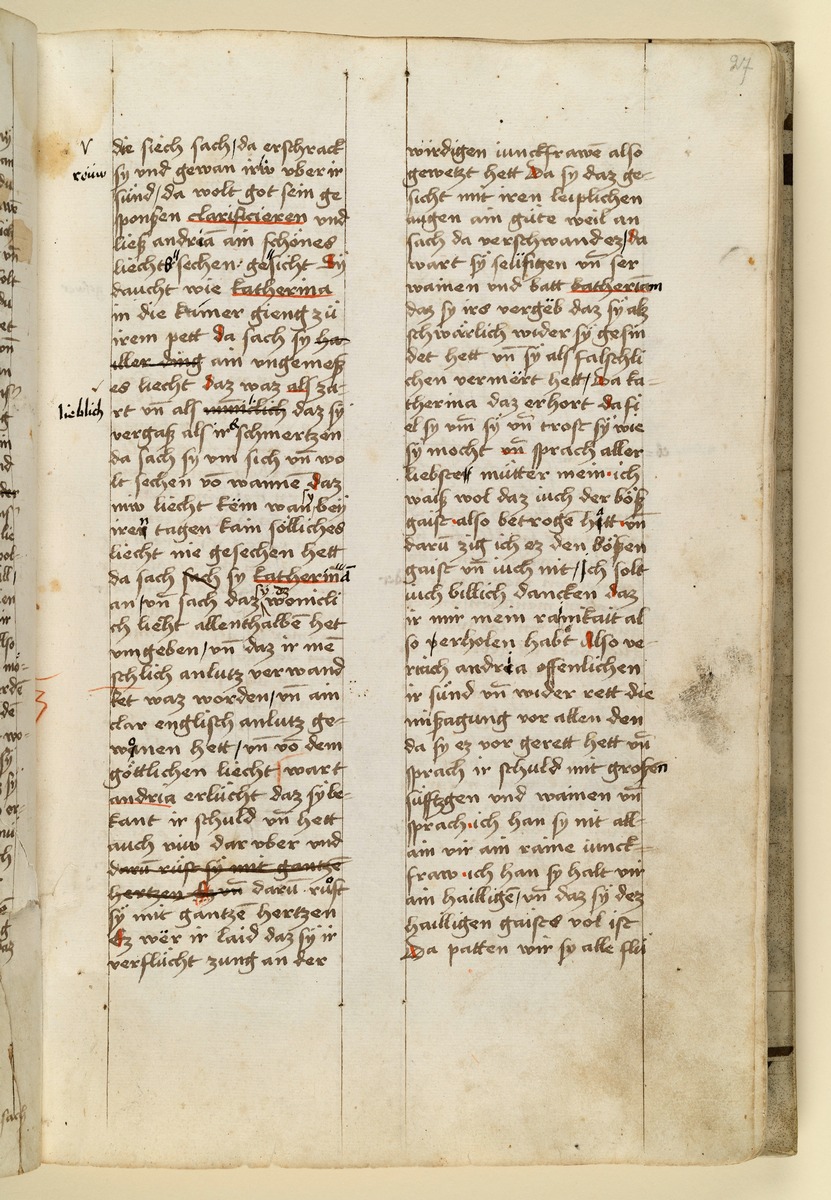 27
die siech sach / da erschrack
röuw
sy vnd gewan irw vber ir
sünd / da wolt got sein ge
sponsen clarificieren vnd
ließ andriā ain schönes
liecht sechen gesicht Sy
daucht wie katherina
in die kamer gieng zů
irem pett da sach sy ha
aller ding ain vngemeß
es liecht daz waz als za-
lieblich
rt vn̄ als daz sy
vergaß als ir schmertzen
da sach sy vm sich vn̄ wo
lt sechen vō wannen daz
nw liecht kem wan sy bey
iren tagen kain sölliches
liecht nie gesechen hett
da sach sach sy katherinā
an / vn̄ sach daz sy daz wonicli
ch lieht allenthalbē het
vmgeben / vn̄ daz ir mē
schlich anlutz verwand
ket waz worden / vn̄ ain
clar englisch anlutz ge-
wonen hett / vn̄ vō dem
göttlichen liecht / wart
andria erlücht daz sy be-
kant ir schuld vn̄ hett
auch ruw dar vber vnd
darū rüft sy mit gantzē
hertzen vn̄ darū růft
sy mit gantzē hertzen
Ez wër ir laid daz sy ir
verflücht zung an der
wirdigen iunckfrawē also
gewetzt hett Da sy daz ge-
sicht mit iren leiplichen
augen ain gůte weil an
sach da verschwand ez / da
wart sy seüfftgen vn̄ ser
wainen vnd batt katherinam
daz sy irs vergëb daz sy alz
schwärlich wider sy gesin
det hett vn̄ sy als falschli
chen vermërt hett / Da ka-
therina daz erhort da fi
el sy vm sy vn̄ trost sy wie
sy mocht vn̄ sprach aller
liebste můtter mein ich
waiß wol daz iuch der böß
gaist also betroge hätt vn̄
darū zig ich ez den bößen
gaist vn̄ iuch nit / Ich solt
iuch billich dancken daz
ir mir mein rainikait al
so verholen habt Also ve-
riach andria offenlichen
ir sünd vn̄ wider rett die
mißagung vor allen den
da sy ez vor gerett hett vn̄
sprach ir schuld mit großen
süfftzgen vnd wainen vn̄
sprach ich han sy nit all-
ain vir ain raine iunck-
fraw ich han sy halt vir
ain hailligē / vn̄ daz sy dez
hailligen gaistes vol ist
Da patten wir sy alle fli